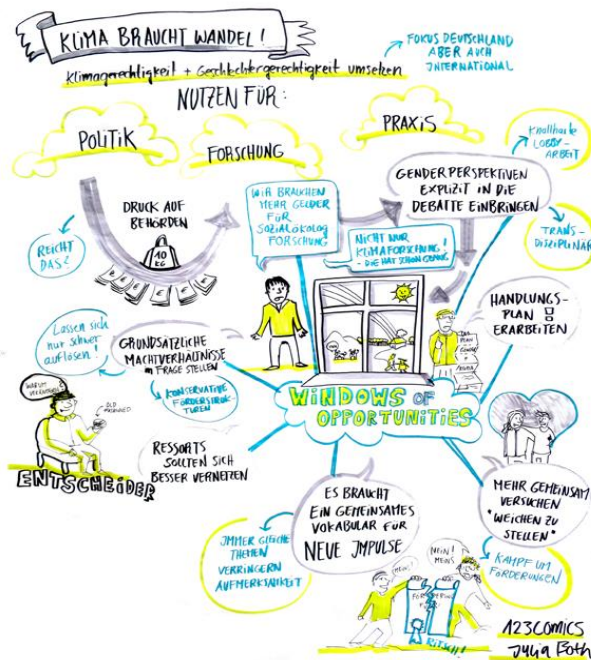 KLIMA BRAUCHT WANDEL!
Klimagerechtigkeit + Geschlechtergerechtigkeit umsetzen
FOKUS DEUTSCHLAND
ABER AUCH
INTERNATIONAL
NUTZEN FÜR:
POLITIK
FORSCHUNG
PRAXIS
Knallharte
LOBBY-
ARBEIT
DRUCK AUF
BEHÖRDEN
10
KG
REICHT
DAS?
WIR BRAUCHEN
MEHR GELDER
FÜR
SOZIALÖKOLOG
FORSCHUNG
GENDERPERSPEKTIVEN
EXPLIZIT IN DIE
DEBATTE EINBRINGEN
TRANS-
DISZIPLINÄR
NICHT NUR
KLIMAFORSCHUNG!
- DIE HAT SCHON GENUG
HANDLUNGS-
PLAN
ERARBEITEN
Lassen sich
nur schwer
auflösen!
GRUNDSÄTZLICHE
MACHTVERHÄLTNISSE
in FRAGE STELLEN
KONSERVATIVE
FÖRDERSTRUK-
TUREN
WARUM
OLD
ENTSCHEIDER
RESSORTS
SOLLTEN SICH
BESSER VERNETZEN
WINDOWS OF
OPPORTUNITIES
PLAN
ES BRAUCHT
EIN GEMEINSAMES
VOKABULAR FÜR
NEUE IMPULSE
IMMER GLEICHE
THEMEN
VERRINGERN
AUFMERKSAMKEIT
MEHR GEMEINSAM
VERSUCHEN
"WEICHEN ZU
STELLEN"
KAMPF UM
FÖRDERUNGEN
MEINS!
NEIN!
MEINS
RITSCH!
123COMICS
Julia Both